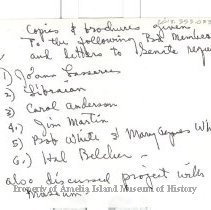 Copies & brochures given
To the following Bd. Members
and letters to Senate
1)
2)
3) Carol Anderson
4.) Jim Martin
5) Bob White & Mary Agnes Wh
6.) Hal Belcher -
also discussed project with
Museum.
Property of Amelia Island Museum of History